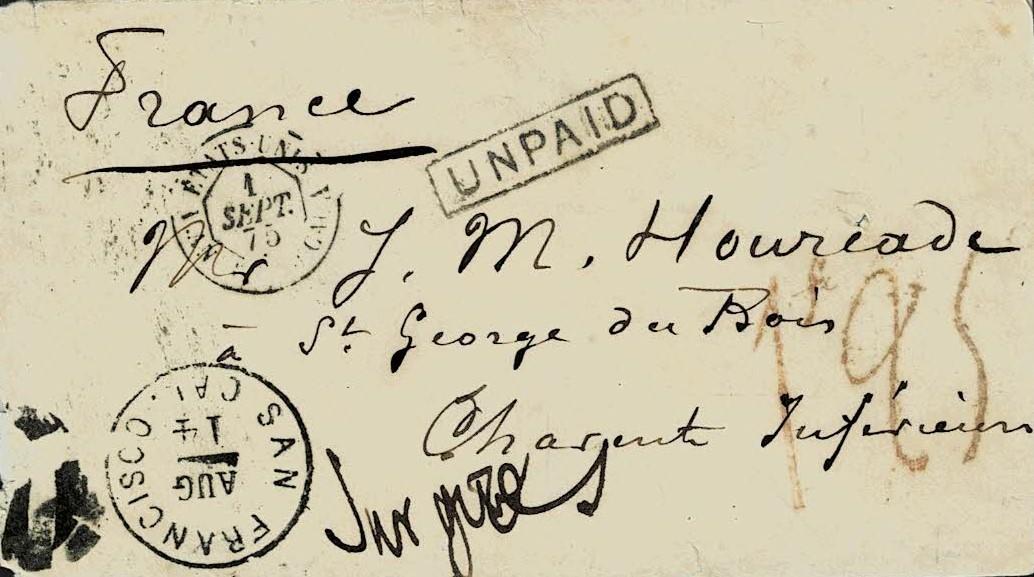 France
UNPAID
ETATS-UNIS
1
SEPT.
75
Mr J. M. Houreade
à St. George du Bois
Charente Inférieure
Surgères
SAN FRANCISCO CAL.
AUG
14